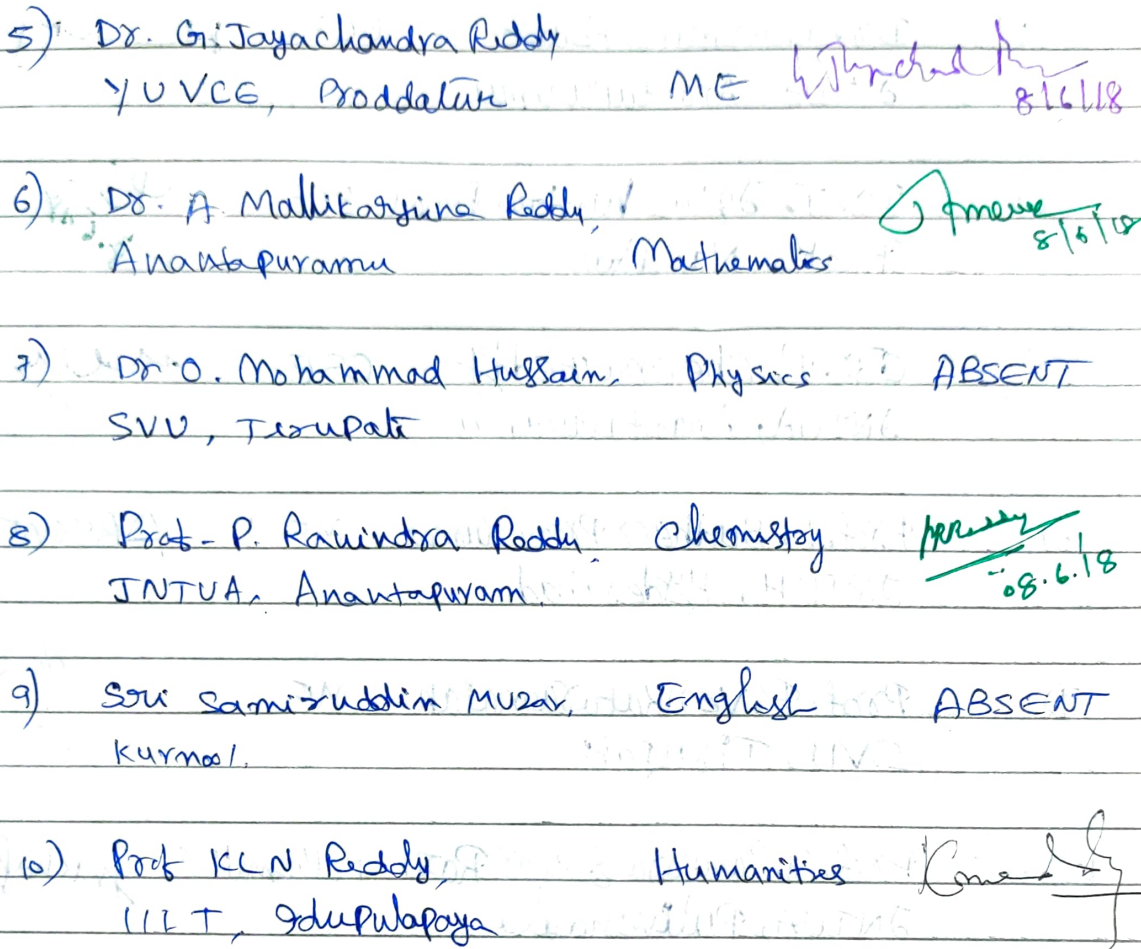 5) Dr. G. Jayachandra Reddy
YUVCE, Proddatur ME 8/6/18
6) Dr. A Mallikarjuna Reddy,
Anantapuramu Mathematics 8/6/18
7) Dr. O. Mohammad Hussain, Physics ABSENT
SVU, Tirupati
8) Prof. P. Ravindra Reddy Chemistry
JNTUA, Anantapuram. 08.6.18
9) Sri Samiruddin Muzar, English ABSENT
Kurnool.
10) Prof KLN Reddy, Humanities
IIIT, Idupulapaya